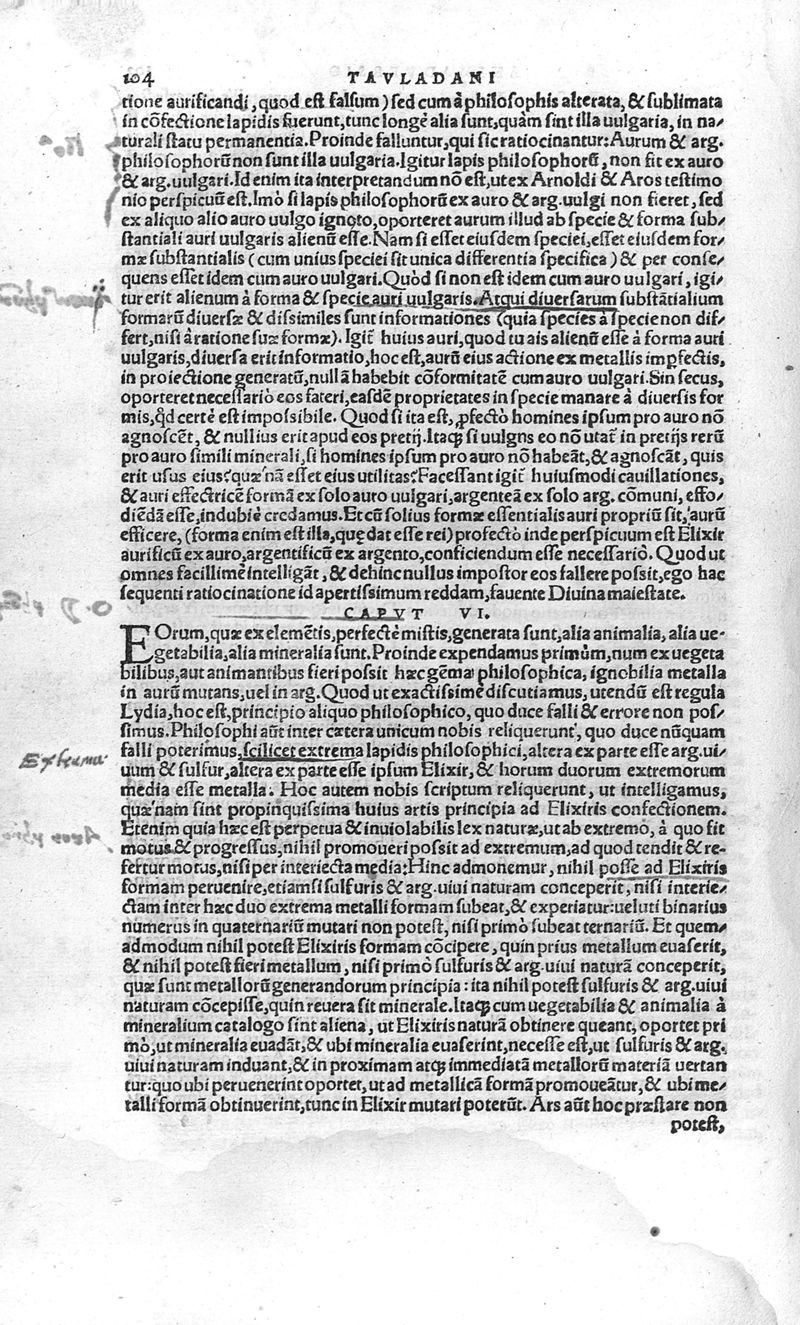 104 TAVLADANI
tione aurificandi, quod est falsum) sed cum à philosophis alterata, & sublimata
in cõfectione lapidis fuerunt, tunc longè alia sunt, quàm sint illa uulgaria, in na/
turali statu permanentia. Proinde falluntur, qui sic ratiocinantur: Aurum & arg.
philosophorũ non sunt illa uulgaria. Igitur lapis philosophorũ, non fit ex auro
& arg. uulgari. Id enim ita interpretandum nõ est, ut ex Arnoldi & Aros testimo
nio perspicuũ est. Imò si lapis philosophorũ ex auro & arg. uulgi non fieret, sed
ex aliquo alio auro uulgo ignoto, oporteret aurum illud ab specie & forma sub/
stantiali auri uulgaris alienũ esse. Nam si esset eiusdem speciei, esset eiusdem for/
mæ substantialis (cum unius speciei sit unica differentia specifica) & per conse/
quens esset idem cum auro uulgari. Quòd si non est idem cum auro uulgari, igi/
tur erit alienum à forma & specie auri uulgaris. Atqui diuersarum substãtialium
formarũ diuersæ & dissimiles sunt informationes (quia species à specie non dif/
fert, nisi à ratione suæ formæ). Igit̃ huius auri, quod tu ais alienũ esse à forma auri
uulgaris, diuersa erit informatio, hoc est, aurũ eius actione ex metallis imꝑfectis,
in proiectione generatũ, nullã habebit cõformitatẽ cum auro uulgari. Sin secus,
oporteret necessariò eos fateri, easdẽ proprietates in specie manare à diuersis for
mis, qd̃ certè est impossibile. Quod si ita est, ꝓfectò homines ipsum pro auro nõ
agnoscẽt, & nullius erit apud eos pretij. Itaq̃ si uulgns eo nõ utat̃ in pretijs rerũ
pro auro simili minerali, si homines ipsum pro auro nõ habeãt, & agnoscãt, quis
erit usus eius? quæ'nã esset eius utilitas? Facessant igit̃ huiusmodi cauillationes,
& auri effectricẽ formã ex solo auro uulgari, argenteã ex solo arg. cõmuni, effo/
diẽdã esse, indubiè credamus. Et cũ solius formæ essentialis auri propriũ sit, aurũ
efficere, (forma enim est illa, quę dat esse rei) profectò inde perspicuum est Elixir
aurificũ ex auro, argentificũ ex argento, conficiendum esse necessariò. Quod ut
omnes facillimè intelligãt, & dehinc nullus impostor eos fallere possit, ego hac
sequenti ratiocinatione id apertissimum reddam, fauente Diuina maiestate.
CAPVT VI.
EOrum, quæ ex elemẽtis, perfectè mistis, generata sunt, alia animalia, alia ue-
getabilia, alia mineralia sunt. Proinde expendamus primùm, num ex uegeta
bilibus, aut animantibus fieri possit hæc gẽma philosophica, ignobilia metalla
in aurũ mutans, uel in arg. Quod ut exactissimè discutiamus, utendũ est regula
Lydia, hoc est, principio aliquo philosophico, quo duce falli & errore non pos/
simus. Philosophi aũt inter cætera unicum nobis reliquerunt, quo duce nũquam
falli poterimus, scilicet extrema lapidis philosophici, altera ex parte esse arg. ui/
Extrema
uum & sulfur, altera ex parte esse ipsum Elixir, & horum duorum extremorum
media esse metalla. Hoc autem nobis scriptum reliquerunt, ut intelligamus,
quæ'nam sint propinquissima huius artis principia ad Elixiris confectionem.
Etenim quia hæc est perpetua & inuiolabilis lex naturæ, ut ab extremo, à quo fit
motus & progressus, nihil promoueri possit ad extremum, ad quod tendit & re-
fertur motus, nisi per interiecta media: Hinc admonemur, nihil posse ad Elixiris
formam peruenire, etiamsi sulfuris & arg. uiui naturam conceperit, nisi interie/
ctam inter hæc duo extrema metalli formam subeat, & experiatur: ueluti binarius
numerus in quaternariũ mutari non potest, nisi primò subeat ternariũ. Et quem/
admodum nihil potest Elixiris formam cõcipere, quin prius metallum euaserit,
& nihil potest fieri metallum, nisi primò sulfuris & arg. uiui naturã conceperit,
quæ sunt metallorũ generandorum principia: ita nihil potest sulfuris & arg. uiui
naturam cõcepisse, quin reuera sit minerale. Itaq̃ cum uegetabilia & animalia à
mineralium catalogo sint aliena, ut Elixiris naturã obtinere queant, oportet pri
mò, ut mineralia euadãt, & ubi mineralia euaserint, necesse est, ut sulfuris & arg.
uiui naturam induant, & in proximam atq̃ immediatã metallorũ materiã uertan
tur: quo ubi peruenerint oportet, ut ad metallicã formã promoueãtur, & ubi me/
talli formã obtinuerint, tunc in Elixir mutari poterũt. Ars aũt hoc præstare non
potest,